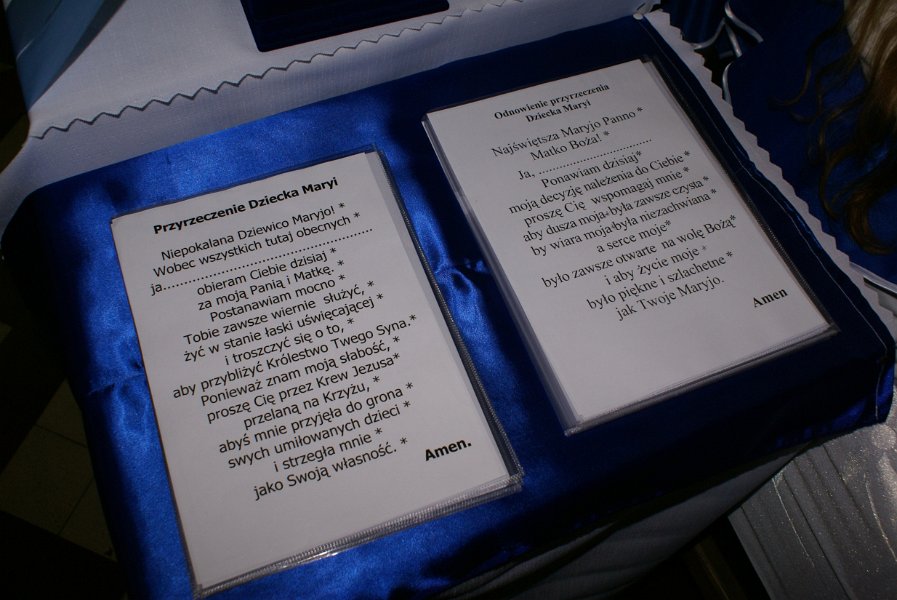 Przyrzeczenie Dziecka Maryi
Niepokalana Dziewico Maryjo! *
Wobec wszystkich tutaj obecnych *
ja.......................................................
obieram Ciebie dzisiaj *
za moją Panią i Matkę. *
Postanawiam mocno *
Tobie zawsze wiernie służyć, *
żyć w stanie łaski uświęcającej *
i troszczyć się o to, *
aby przybliżyć Królestwo Twego Syna.*
Ponieważ znam moją słabość, *
proszę Cię przez Krew Jezusa*
przelaną na Krzyżu, *
abyś mnie przyjęła do grona *
swych umiłowanych dzieci *
i strzegła mnie *
jako Swoją własność. *
Amen.
Odnowienie przyrzeczenia
Dziecka Maryi
Najświętsza Maryjo Panno *
Matko Boża! *
Ja, ...................................
Ponawiam dzisiaj*
moją decyzję należenia do Ciebie *
proszę Cię wspomagaj mnie *
aby dusza moja*była zawsze czysta *
by wiara moja*była niezachwiana *
a serce moje*
było zawsze otwarte na wolę Bożą*
i aby życie moje *
było piękne i szlachetne *
jak Twoje Maryjo.
Amen